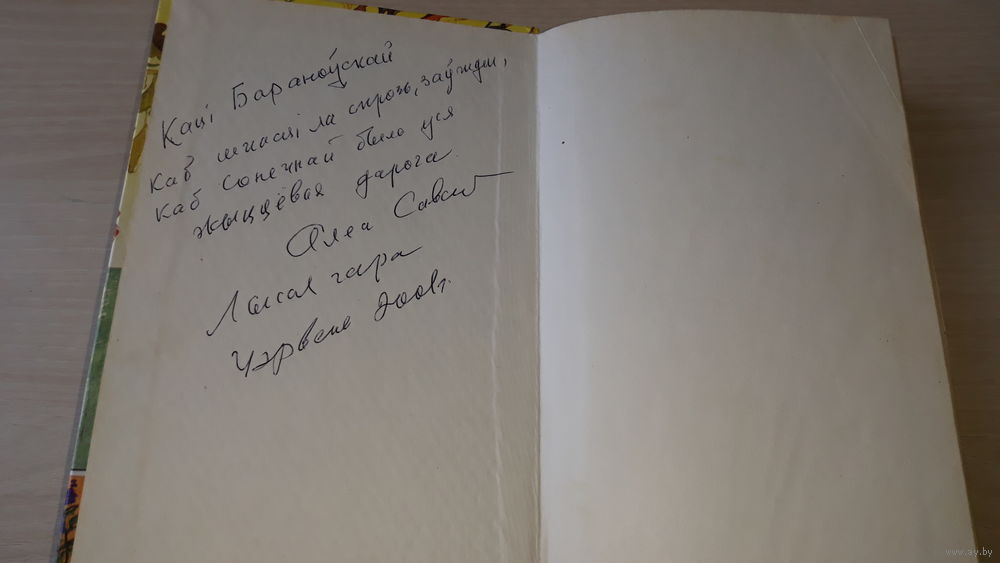 Каці Бараноўскай
Каб шчасціла скрозь, заўжды,
каб сонечнай была уся
жыццёвая дарога.
Алесь Савіцкі
Лысая гара
Чэрвень 200 г.
www.ay.by